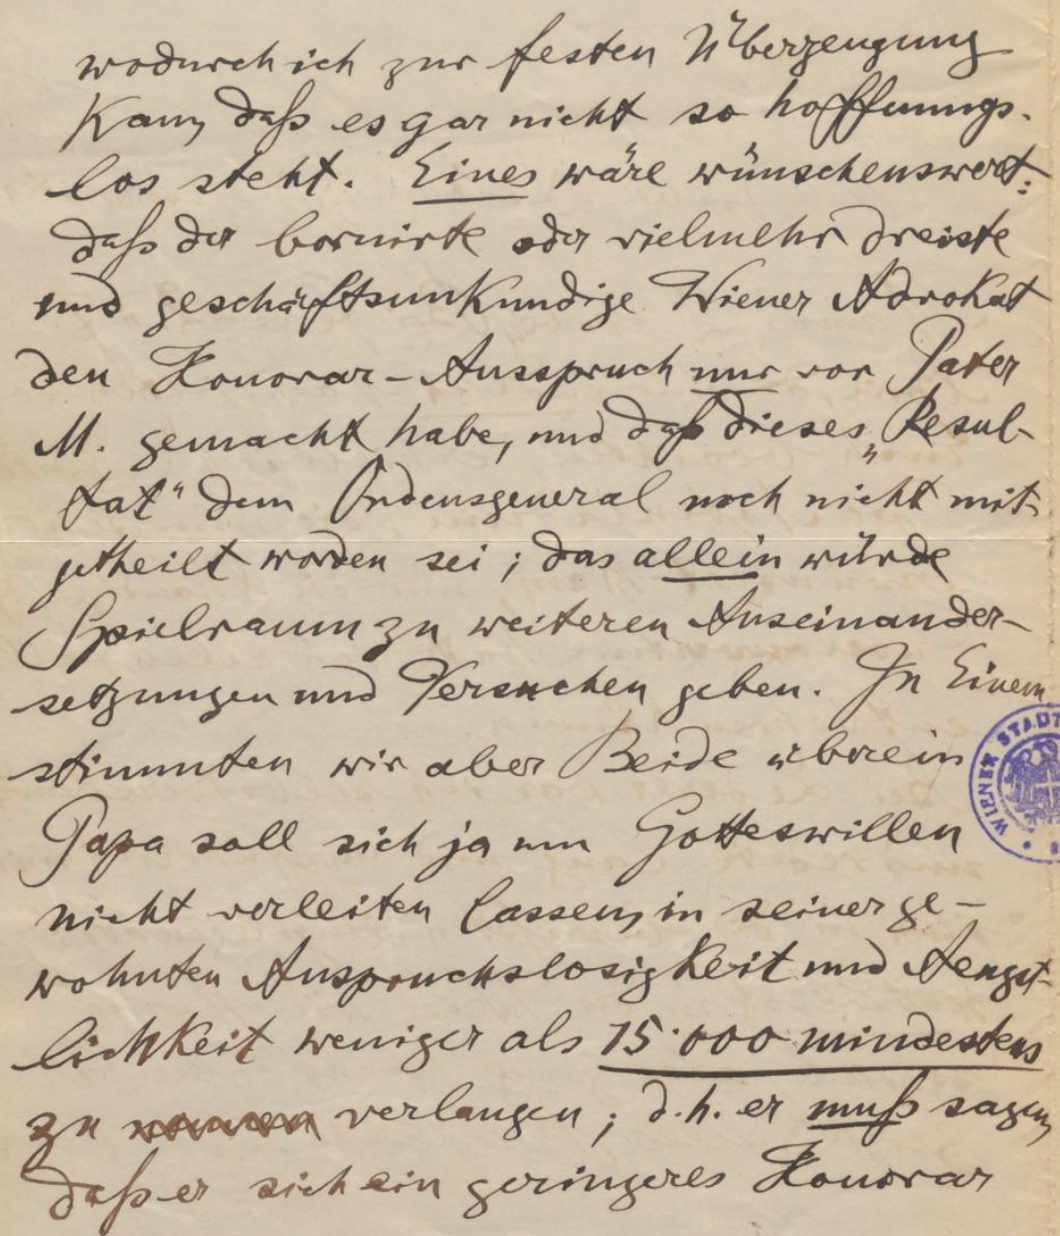 wodurch ich zur festen Überzeugung
kam, daß es gar nicht so hoffnungs-
los steht. Eines wäre wünschenswert:
daß der bornirte oder vielmehr dreiste
und geschäftsunkundige Wiener Advokat
den Honorar-Ausspruch nur vor Pater
M. gemacht habe, und daß dieses „Resul-
tat“ dem Ordensgeneral noch nicht mit-
getheilt worden sei; das allein würde
Spielraum zu weiteren Auseinander-
setzungen und Versuchen geben. In Einem
stimmten wir aber Beide überein
Papa soll sich ja um Gotteswillen
nicht verleiten lassen, in seiner ge-
wohnten Anspruchslosigkeit und Aengst-
lichkeit weniger als 15.000 mindestens
zu verlangen; d.h. er muß sagen,
daß er sich ein geringeres Honorar
WIENER STADT